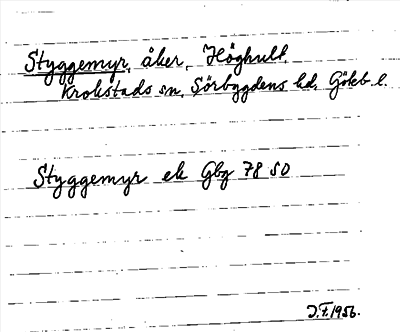 Styggemyr, åker, Höghult,
Krokstads sn, Sörbygdens hd, Göteb. l.
Styggemyr ek Gbg 78 SO
J.F. 1956.